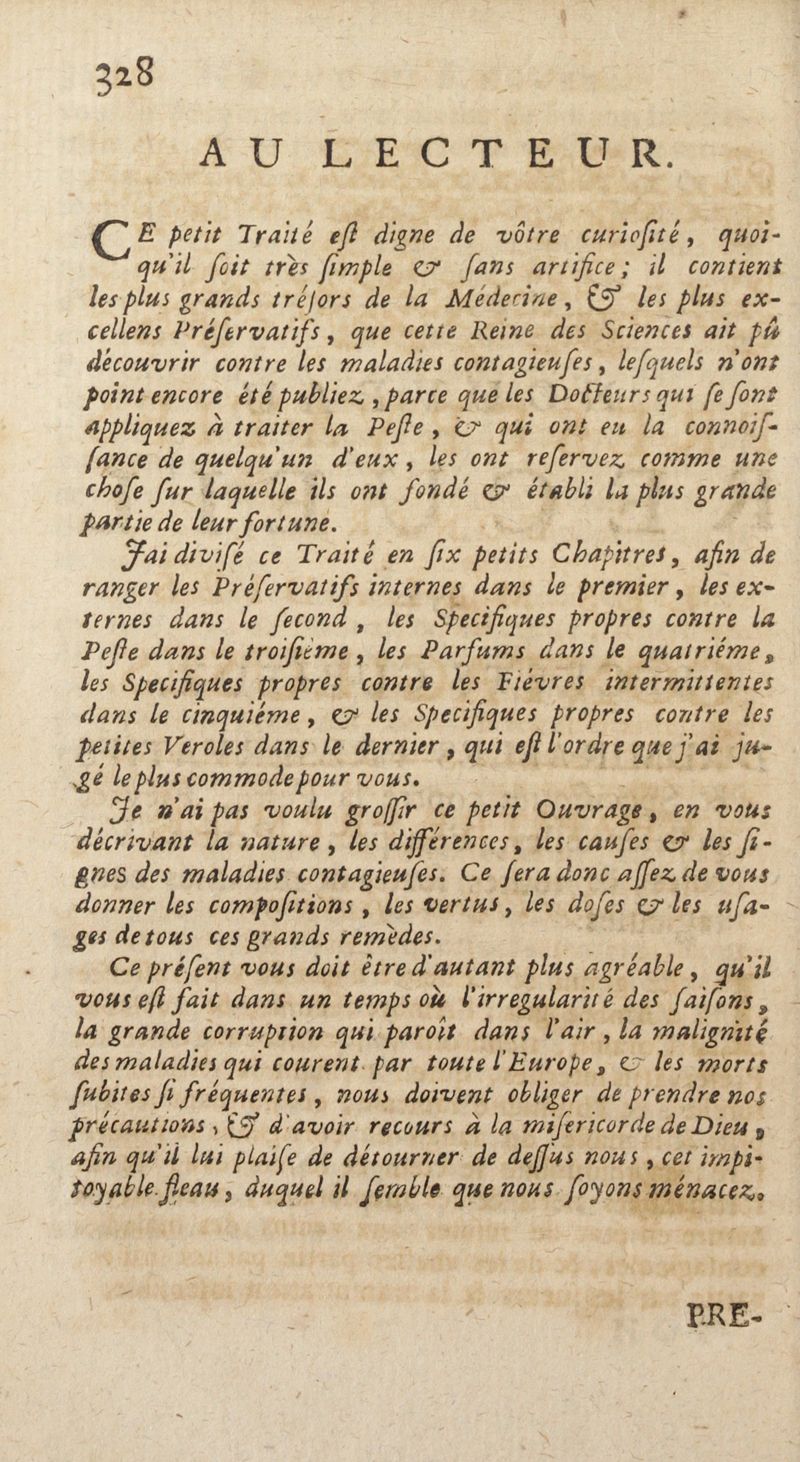 328
AU LECTEUR.
CE petit Traité eſt digne de vôtre curioſité, quoi-
qu'il ſoit très ſimple & ſans artifice; il contient
les plus grands tréſors de la Médecine, & les plus ex-
cellens Préſervatifs, que cette Reine des Sciences ait pû
découvrir contre les maladies contagieuſes, leſquels n'ont
point encore été publiez, parce que les Docteurs qui ſe ſont
appliquez à traiter la Peſte, & qui ont eu la connoiſ-
ſance de quelqu'un d'eux, les ont reſervez comme une
choſe ſur laquelle ils ont fondé & établi la plus grande
partie de leur fortune.
J'ai diviſé ce Traité en ſix petits Chapitres, afin de
ranger les Préſervatifs internes dans le premier, les ex-
ternes dans le ſecond, les Specifiques propres contre la
Peſte dans le troiſiéme, les Parfums dans le quatriéme,
les Specifiques propres contre les Fiévres intermittentes
dans le cinquiéme, & les Specifiques propres contre les
petites Veroles dans le dernier, qui eſt l'ordre que j'ai ju-
gé le plus commode pour vous.
Je n'ai pas voulu groſſir ce petit Ouvrage, en vous
décrivant la nature, les différences, les cauſes & les ſi-
gnes des maladies contagieuſes. Ce ſera donc aſſez de vous
donner les compoſitions, les vertus, les doſes & les uſa-
ges de tous ces grands remèdes.
Ce préſent vous doit être d'autant plus agréable, qu'il
vous eſt fait dans un temps où l'irregularité des ſaiſons,
la grande corruption qui paroît dans l'air, la malignité
des maladies qui courent par toute l'Europe, & les morts
ſubites ſi fréquentes, nous doivent obliger de prendre nos
précautions, & d'avoir recours à la miſericorde de Dieu,
afin qu'il lui plaiſe de détourner de deſſus nous, cet impi-
toyable fleau, duquel il ſemble que nous ſoyons ménacez.
PRE-